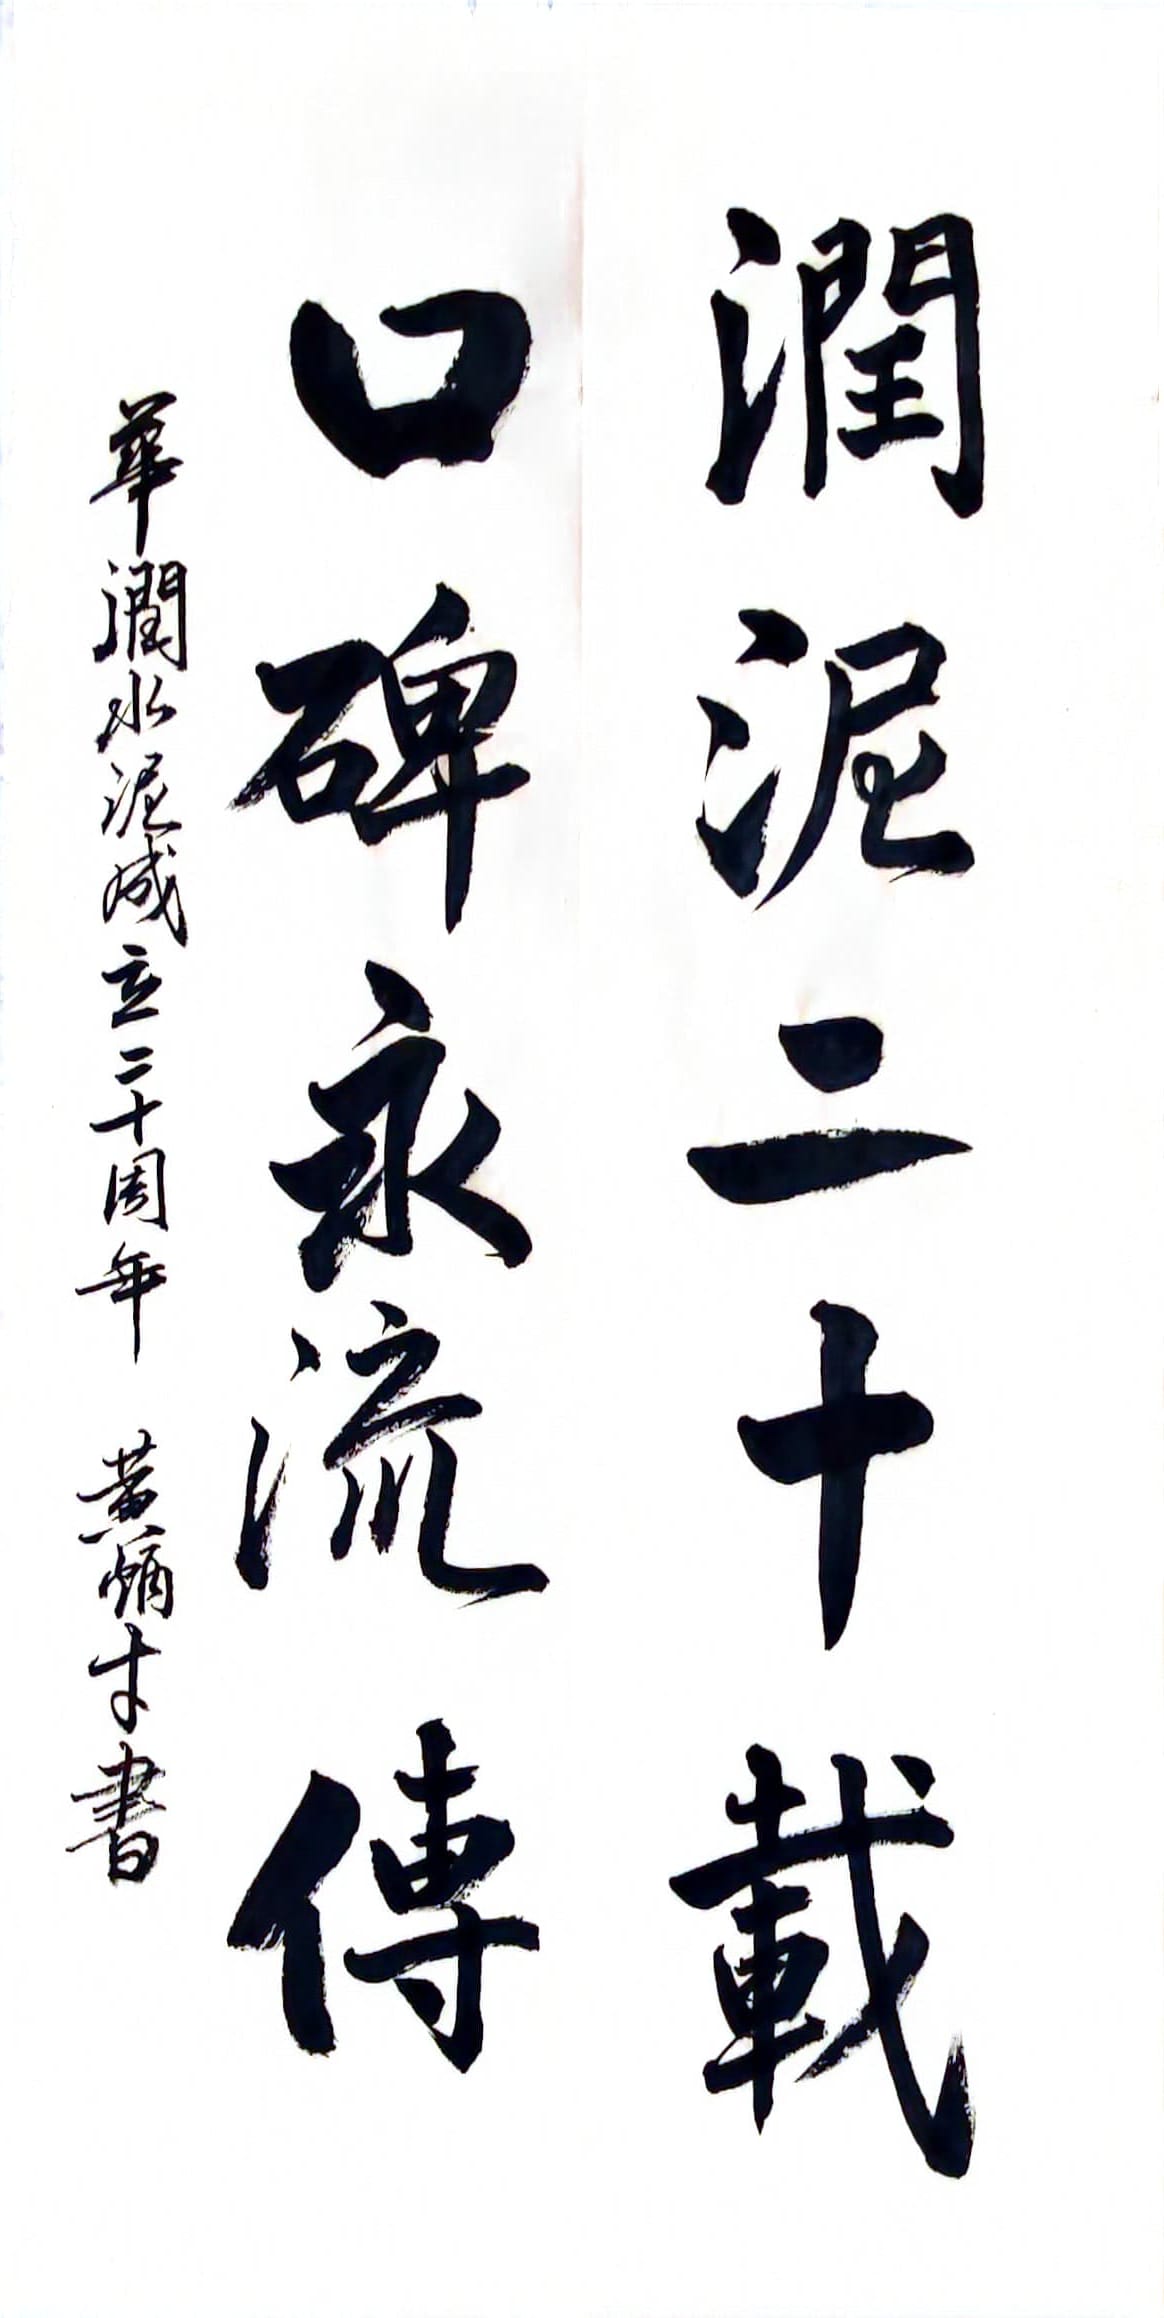 潤泥二十載
口碑永流傳
華潤水泥成立二十周年 黃炳才書